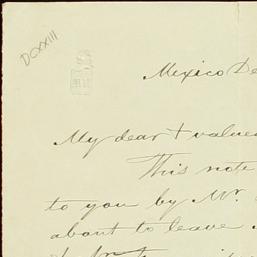 DCXXIII
Mexico De
My dear + value
This note
to you by Mr.
about to leave